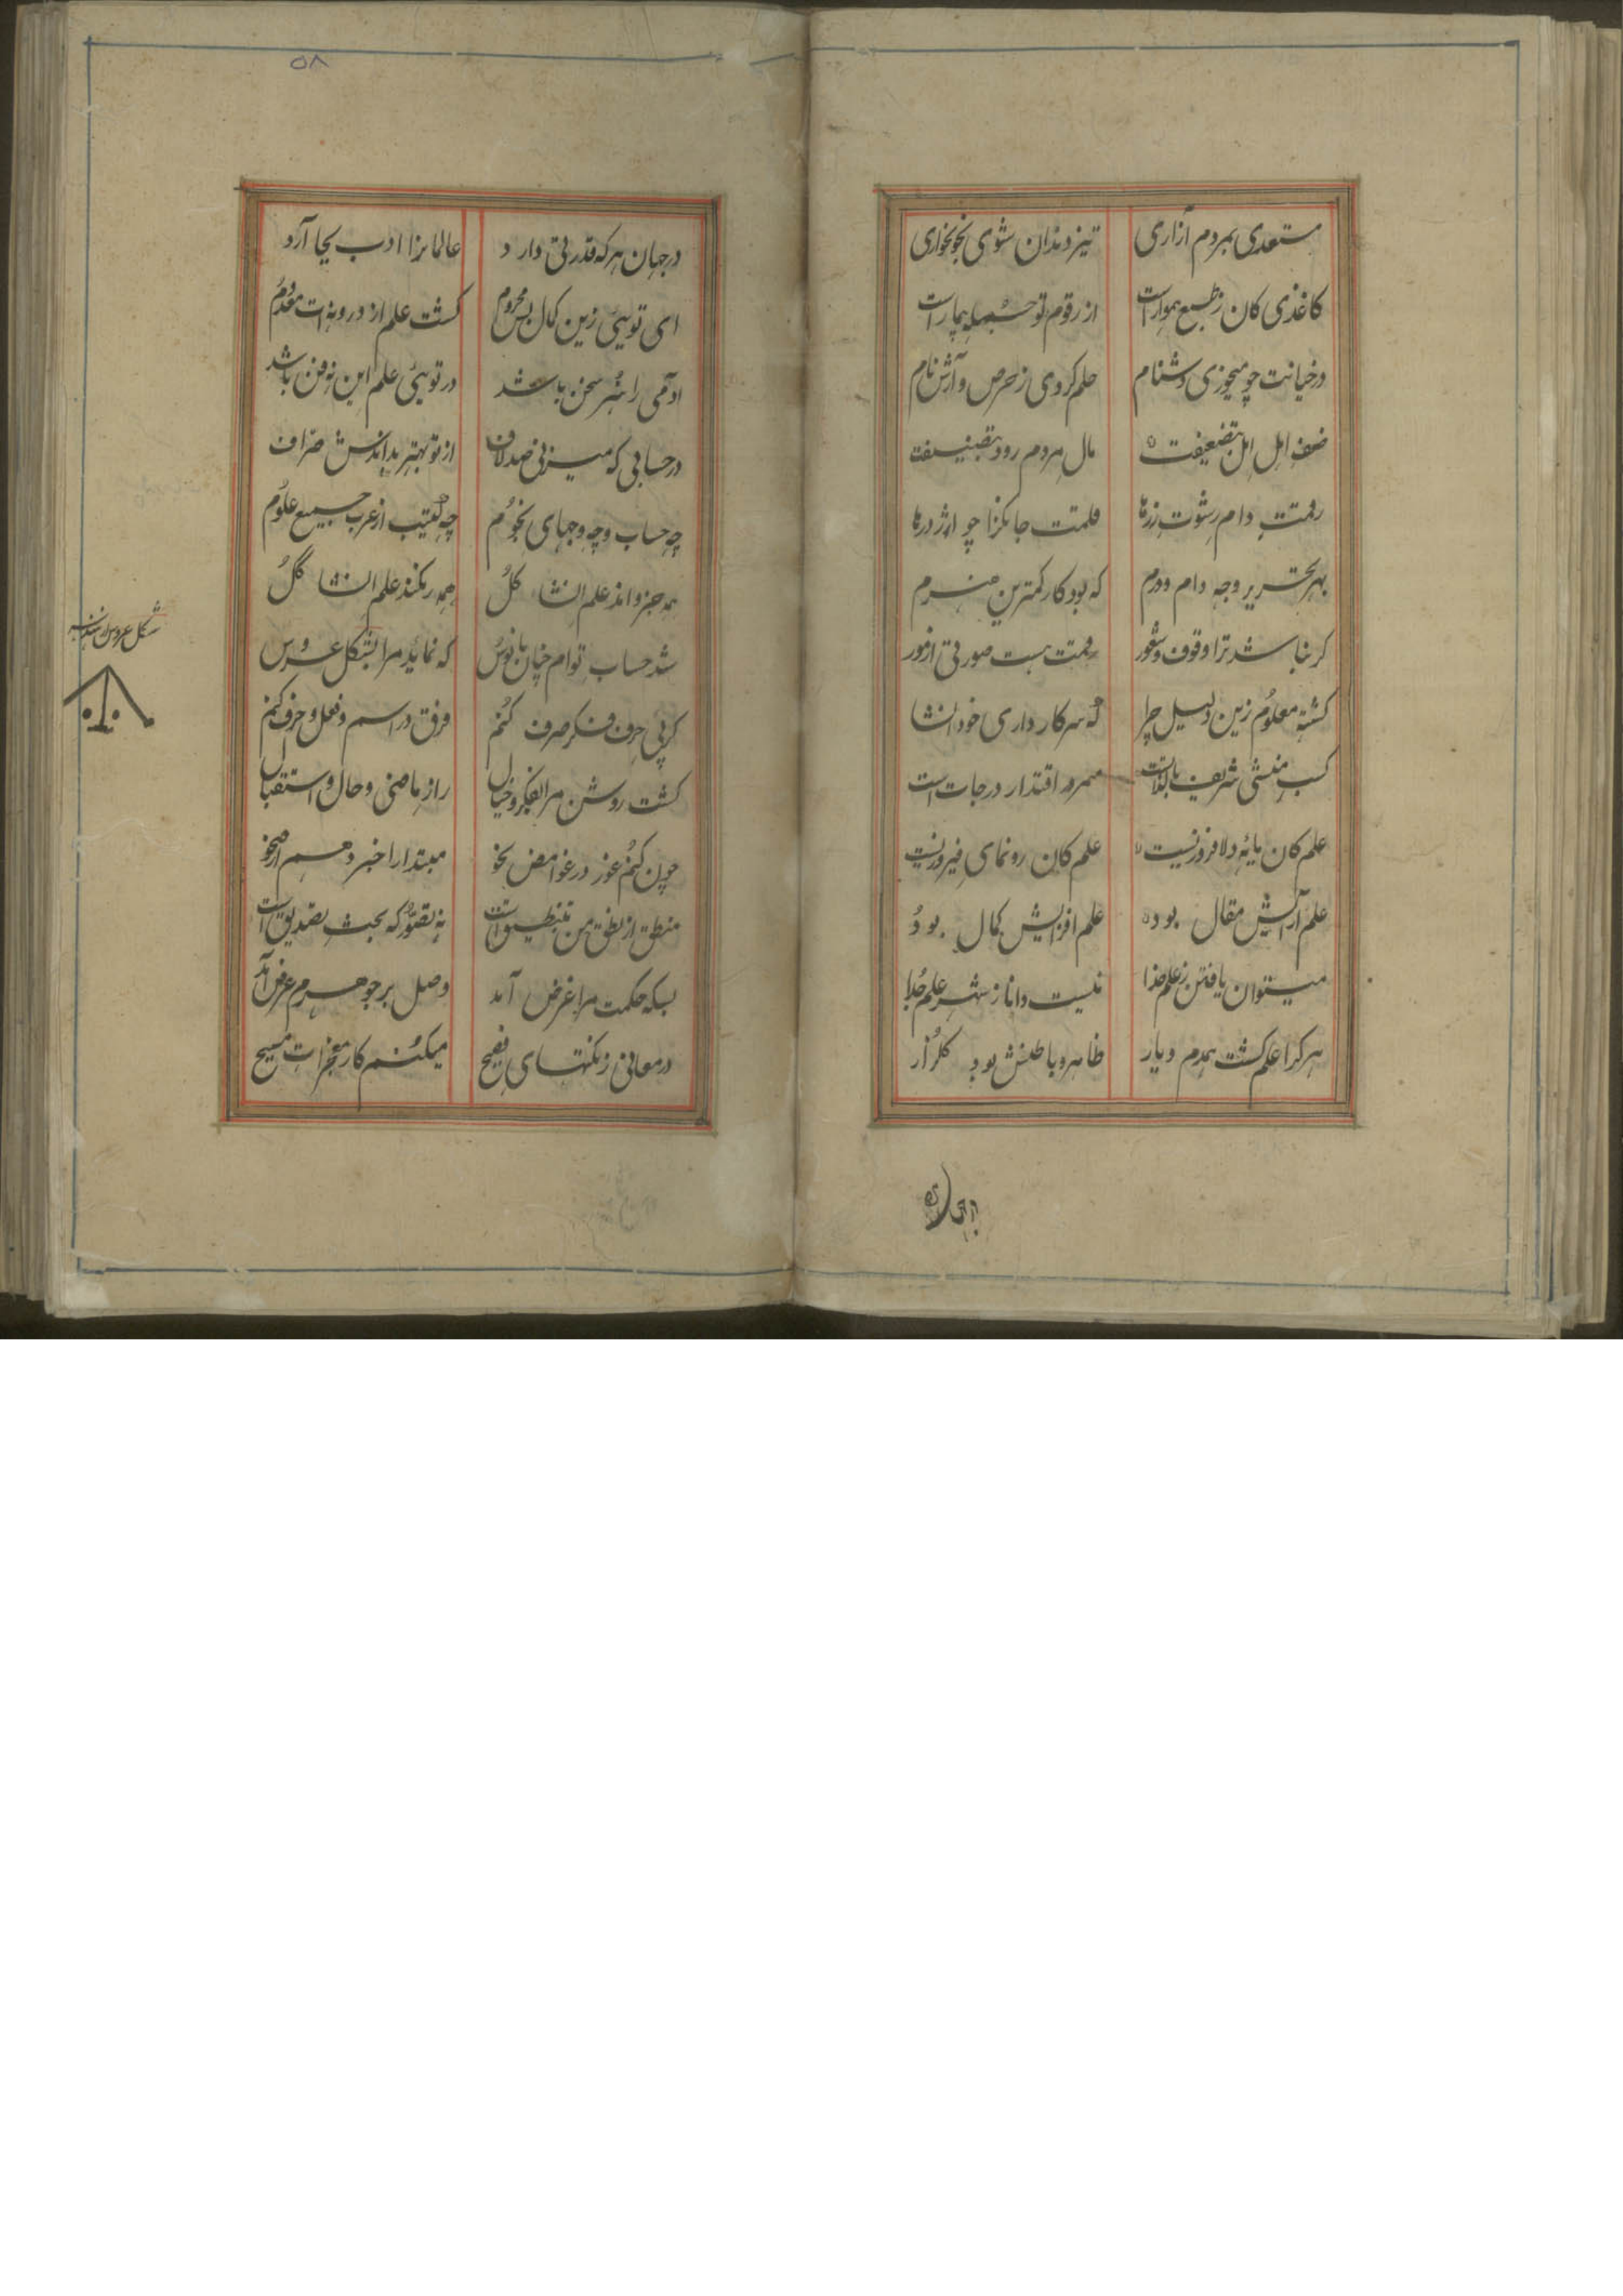 مستعدی بمردم آزاری تیز دندان شوی بخونخواری
کاغذی کان زطبع هموار است از رقوم تو بیمار است
در خیانت چو میخوری دشنام حلم کردی ز حرص و آتش نام
اهل مال مردم رود
رقمت دام رشوت زرها قلمت جانگزا چو اژدرها
بهر تحریر وجه دام و درم که بود کار کمترین
گر نباشد ترا وقوف و شعور رقمت هست صورتی از مور
گشته معلوم زین دلیل چرا که سر کار داری خود انشا
کسب منشی شریف بالذات است اقتدار درجات است
علم کان مایۀ دلافروزیست علم کان رونمای فیروزیست
علم آرایش مقال بود علم افزایش کمال بود
میتوان یافتن ز علم خدا نیست دانا ز شهر علم جدا
هر کرا علم گشت همدم و یار ظاهر و باطنش بود گلزار
در جهان
۵۸
در جهان هر که قدرتی دارد عالمانرا ادب بجا آرد
ای تویی زین کمال بس محروم گشت علم از درونه ات معدوم
آدمی را شرر سخن باشد در تویی علم این نه فن باشد
در حسابی که میزنی صد لاف از تو بهتر بداندش صراف
چه حساب و چه وجهای نجوم چه از عرب جمیع علوم
همه جزو اند علم انشا کل همه رنگند علم انشا گل
شد حساب توام چنان مانوس که نماید مرا بشکل عروس
گر پی حرف فکر صرف کنم فرق در اسم و فعل و حرف کنم
گشت روشن مرا بفکر و خیال راز ماضی و حال و استقبال
چون کنم غور در غوامض نحو مبتدا را خبر دهم از محو
منطق از نطق من بتنطیق است نه تصور که بحث تصدیق است
بسکه حکمت مرا غرض آمد وصل بر جوهرم عرض آمد
در معانی ز نکتهای فصیح میکنم کار معجزات مسیح
شکل عروس